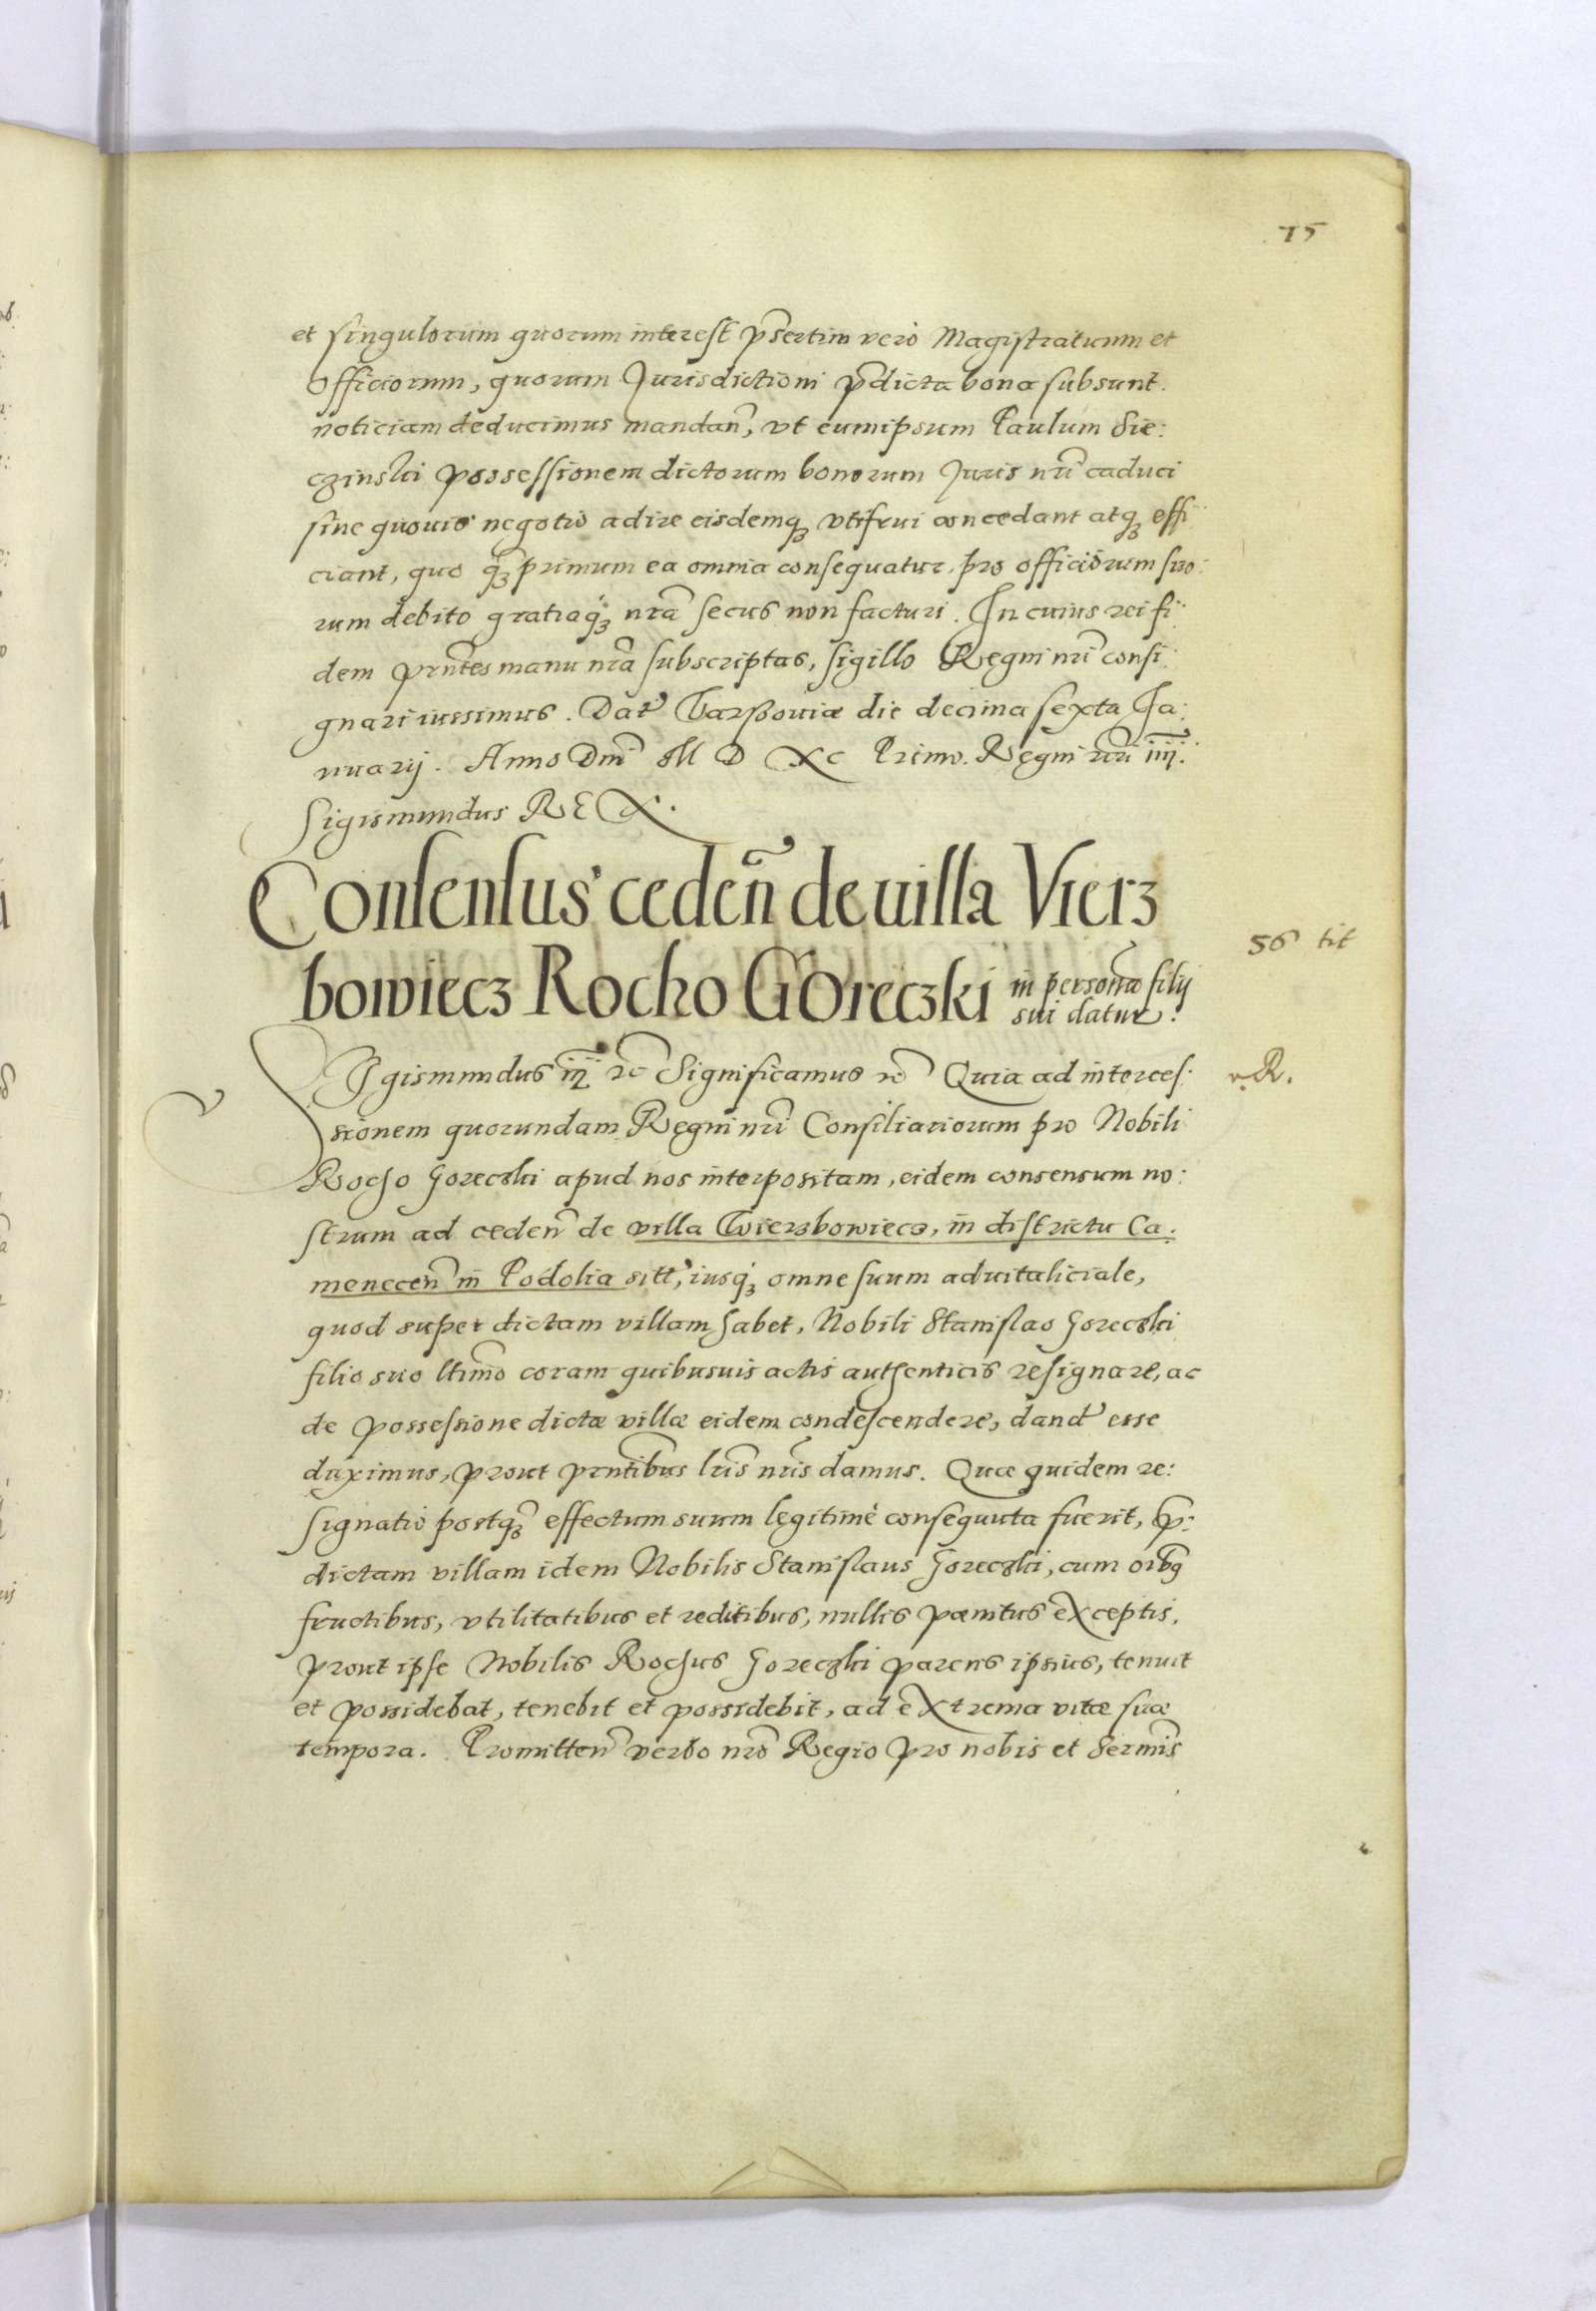 75
et singulorum quorum interest p̃sertim verò Magistratuum et
Officiorum, quorum Jurisdictioni p̃dicta bona subsunt.
noticiam deducimus mandan̄, vt eumipsum Paulum Sie:
czinski possessionem dictorum bonorum Juris nr̄i caduci
sine quouis negotio adire eisdemqꝫ vtifrui concedant atqꝫ effi:
ciant, quo qꝫ primum ea omnia consequatur, pro officiorum suo:
rum debito gratiaqꝫ nrã secus non facturi. In cuius rei fi:
dem prñtes manu nrã subscriptas, sigillo Regni nr̄i consi:
gnari iussimus. Dat̃ Varßoviæ die decima sexta Ja:
nuarij. Anno Dnĩ M D XC Primo. Regni nr̄i iiij.
Sigismundus REX.
Consensus cedeñ de uilla Vierz
bowiecz Rocho Goreczki in persona filij
sui datur.
56 tit
Sigismundus iij ꝛc Significamus ꝛc Quia ad interces:
r. R.
sionem quorundam Regni nr̄i Consiliariorum pro Nobili
Rocho Goreczki apud nos interpositam, eidem consensum no:
strum ad cedeñ de villa Wierzbowiecz, in districtu Ca:
meneceñ in Podolia sitt̃, iusqꝫ omne suum aduitaliciale,
quod super dictam villam habet, Nobili Stanislao Goreczki
filio suo ltimõ coram quibusuis actis authenticis resignare, ac
de possessione dictæ villæ eidem condescendere, dand̃ esse
duximus, prout prñtibus lris̃ nris̃ damus. Quæ quidem re:
signatio postqꝫ effectum suum legitimè consequuta fuerit, p̃:
dictam villam idem Nobilis Stanislaus Goreczki, cum oĩbꝫ
fructibus, vtilitatibus et reditibus, nullis pænitus exceptis,
prout ipse Nobilis Rochus Goreczki parens ipsius, tenuit
et possidebat, tenebit et possidebit, ad extrema vitæ suæ
tempora. Promitteñ verbo nr̃o Regio pro nobis et Sermis̃